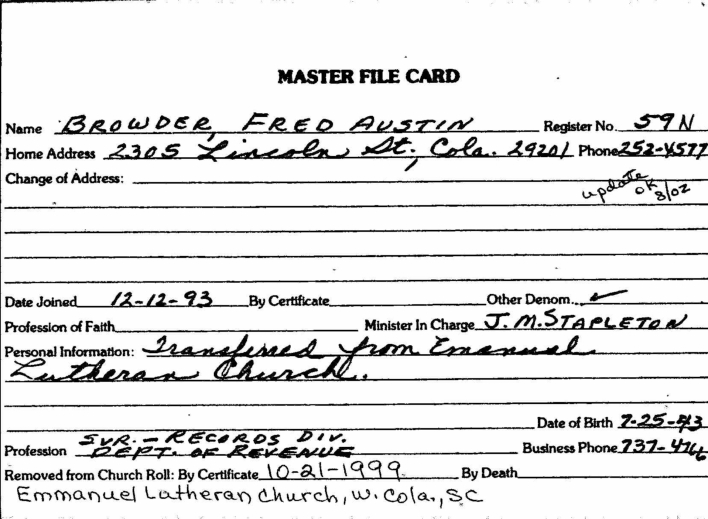 MASTER FILE CARD
Name BROWDER, FRED AUSTIN Register No. 59N
Home Address 2305 Lincoln St., Cola. 29201 Phone 252-4577
Change of Address:
update
OK 8/02
Date Joined 12-12-93 By Certificate Other Denom. ✓
Profession of Faith Minister In Charge J.M. STAPLETON
Personal Information: Transferred from Emanuel
Lutheran Church.
Date of Birth 7-25-43
SVR. - RECORDS DIV.
Profession DEPT. OF REVENUE Business Phone 737-
Removed from Church Roll: By Certificate 10-21-1999 By Death
Emmanuel Lutheran Church, W. Cola., SC